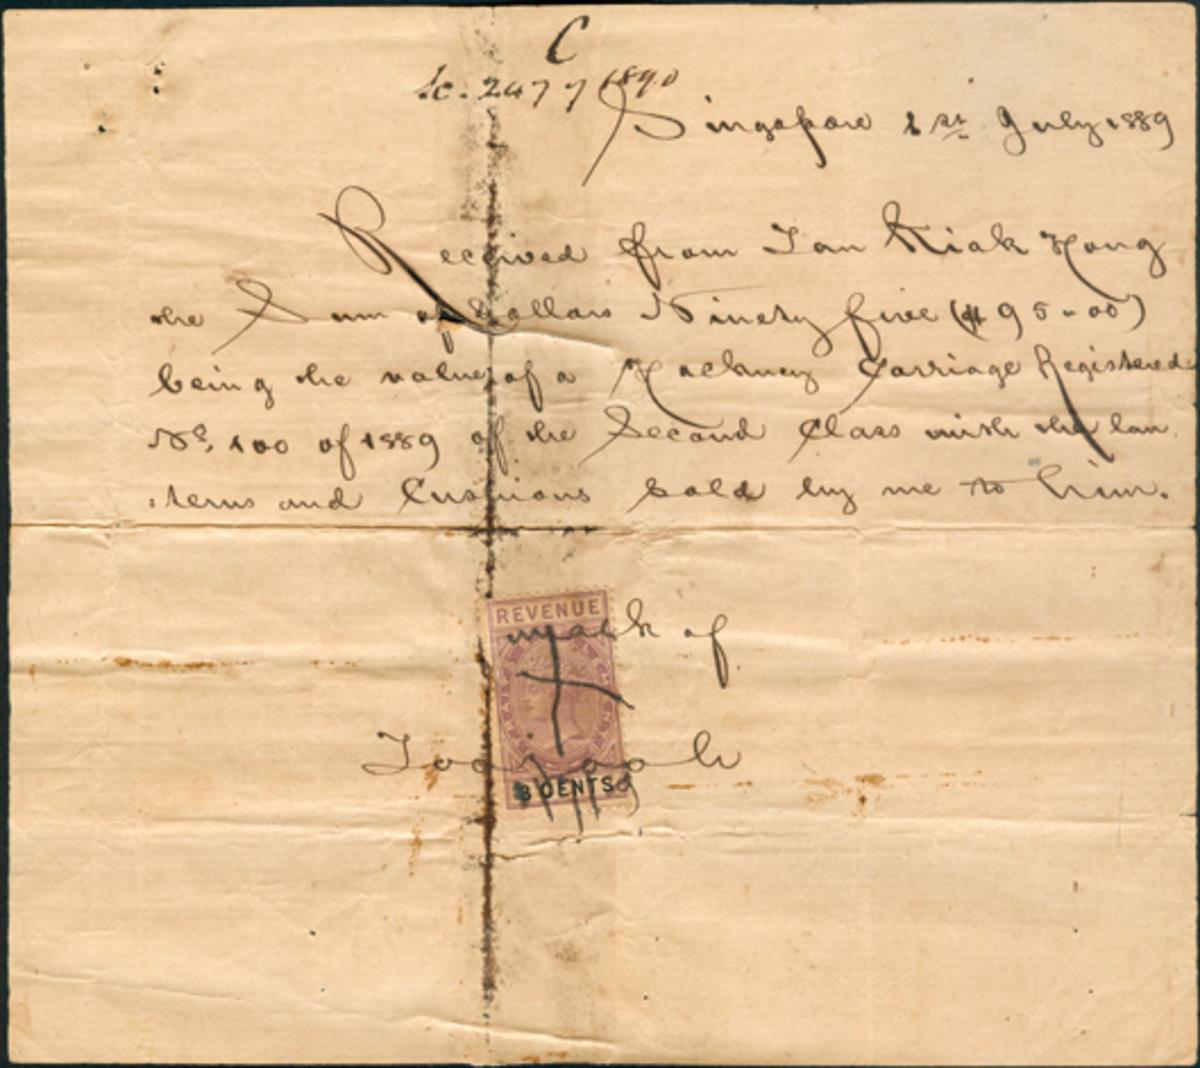 C
Sc. 247 of 1890
Singapore 1st July 1889
Received from Tan Kiak Hong
the Sum of dollars Ninety five ($95-00)
being the value of a Hackney Carriage Registered
No. 100 of 1889 of the Second Class with the lan
terns and Cushions sold by me to him.
REVENUE
mark of
X
Tooijoah
3 CENTS